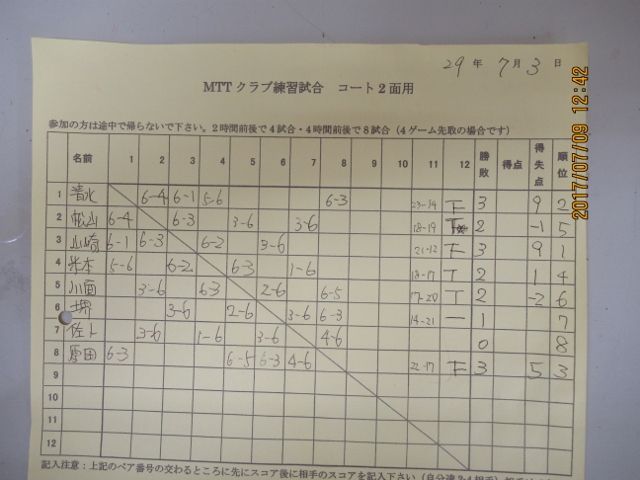 29年 7月 3日
MTTクラブ練習試合 コート2面用
参加の方は途中で帰らないで下さい。2時間前後で4試合・4時間前後で8試合（4ゲーム先取の場合です）
名前 1 2 3 4 5 6 7 8 9 10 11 12 勝敗 得点 得失点 順位
1 清水 6-4 6-1 5-6 6-3 23-14 下 3 9 2
2 松山 6-4 6-3 3-6 3-6 18-19 2 -1 5
3 山崎 6-1 6-3 6-2 3-6 21-12 下 3 9 1
4 米本 5-6 6-2 6-3 1-6 18-17 T 2 1 4
5 川面 3-6 6-3 2-6 6-5 17-20 T 2 -2 6
6 堺 3-6 2-6 3-6 6-3 14-21 一 1 7
7 3-6 1-6 3-6 4-6 0 8
8 原田 6-3 6-5 6-3 4-6 22-17 下 3 5 3
9
10
11
12
記入注意：上記のペア番号の交わるところに先にスコア後に相手のスコアを記入下さい
2017/07/09 12:42